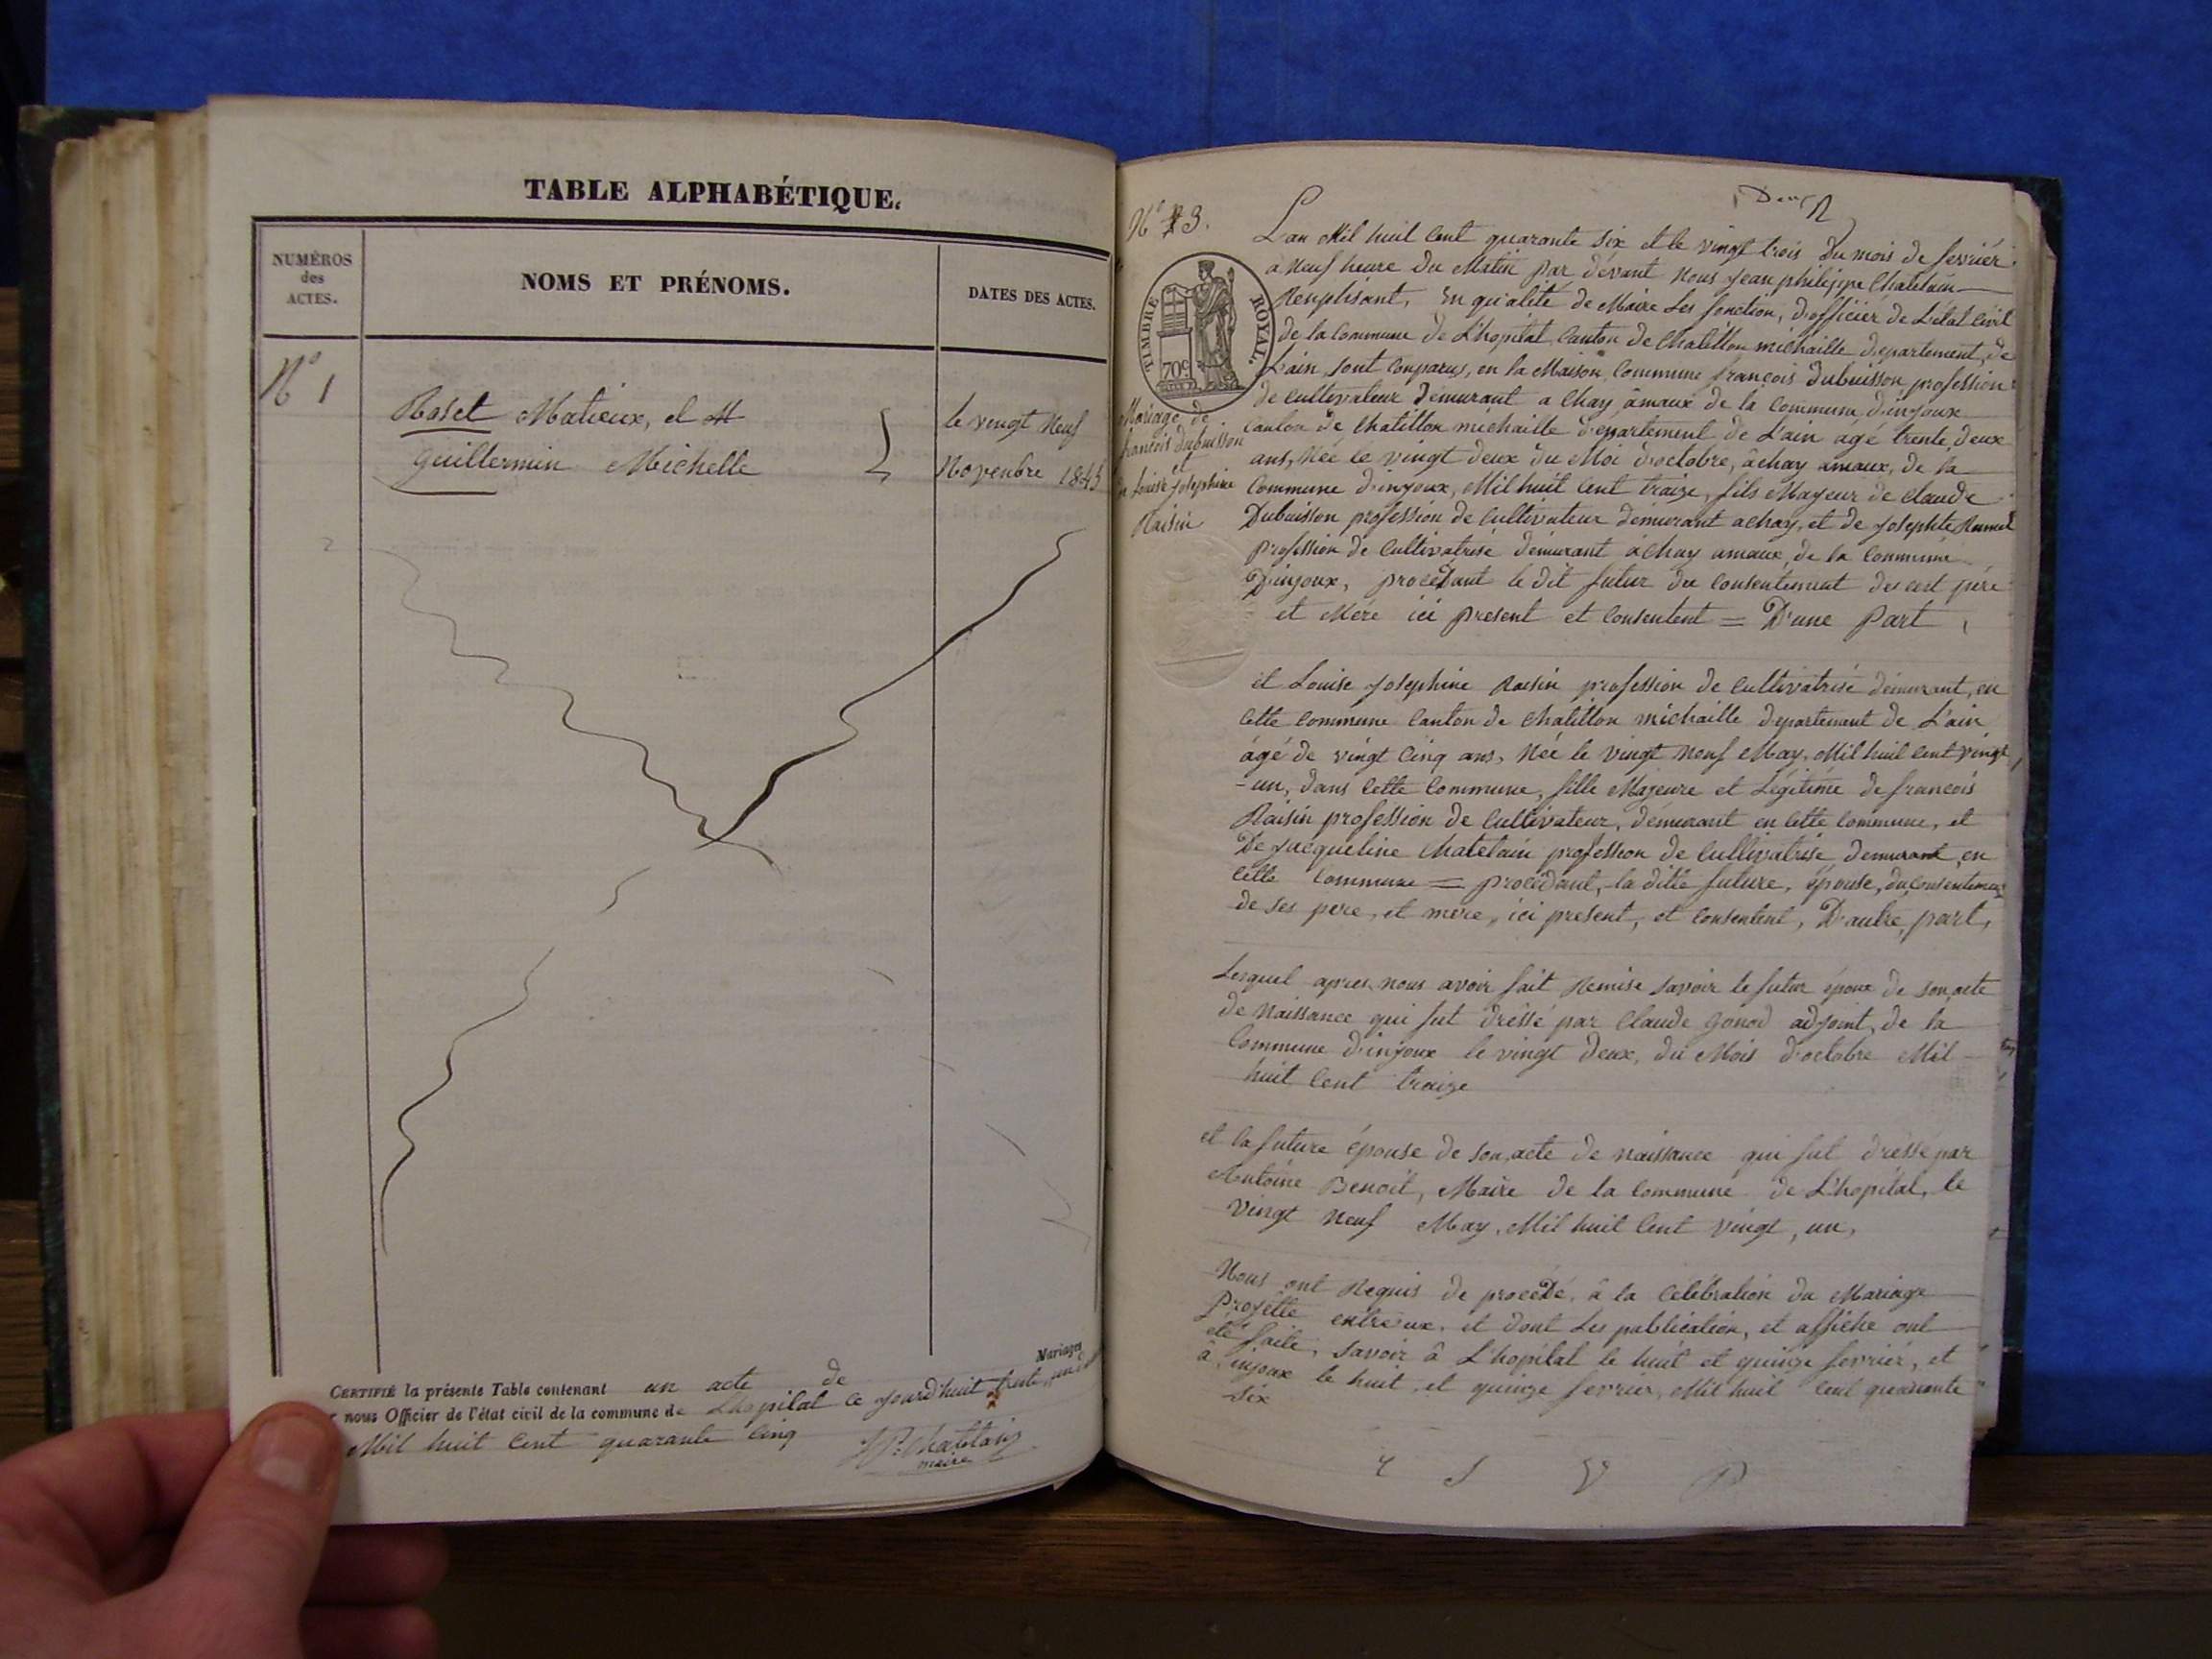 TABLE ALPHABÉTIQUE.
NUMÉROS
des
ACTES.
NOMS ET PRÉNOMS.
DATES DES ACTES.
N° 1
Roset Matieux, et
guillermin Michelle
le vingt Neuf
Novenbre 1845
Mariages
CERTIFIÉ la présente Table contenant un acte de
nous Officier de l'état civil de la commune de L'hopital ce jourd'huit trente un
Mil huit Cent quarante Cinq
JP. Chatelain
maire
N° 3.
TIMBRE ROYAL.
70c
Mariage de
francois dubuisson
et
de Louise Josephine
Raisin
L'an Mil huit Cent quarante six et le vingt trois du mois de fevrièr
à Neuf heure du Matin par dévant nous Jean philippe Chatelain
Remplisant, En qu'alité de Maire Les fonction, d'officier de L'état Civil
de la Commune de L'hopital, Canton de Chatillon michaille departement, de
L'ain, sont Conparus, en la Maison Commune françois dubuisson profession
de Cultivateur demurant a Chay amaux de la Commune d'injoux
Canton de Chatillon michaille departement de L'ain agé trente deux
ans, Née le vingt deux du Moi d'octobre, à chay amaux, de la
Commune d'injoux, Mil huit Cent traize, fils Mayeur de Claude
Dubuisson profession de Cultivateur demurant achay, et de Josephte
profession de Cultivatrise demurant à Chay amaux, de la Commune
D'injoux, procédant le dit futur du Consentement des cest père
et Mère ici present et Consentent = D'une Part,
et Louise Josephine Raisin profession de Cultivatrise demurant, en
Cette Commune Canton de Chatillon michaille departement de L'ain
âgé de vingt Cinq ans, Née le vingt neuf May, Mil huit Cent vingt
-un, dans Cette Commune, fille Majeure et Légitime de francois
Raisin profession de Cultivateur, demurant en Cette Commune, et
De Jacqueline Chatelain profession de Cultivatrise demurant, en
Cette Commune = procédant, la ditte future, épouse, du Consentement
de ses pere, et mère, ici present, et Consentent, D'autre, part,
Lesquel apres nous avoir fait Remise savoir le futur époux de son acte
de Naissance qui fut dréssé par Claude Gonod adjoint, de la
Commune d'injoux le vingt deux, du Mois d'octobre Mil
huit Cent traize
et la future épouse de son acte de naissance qui fut dréssé par
Antoine Benoit, Maire de la Commune de L'hopital, le
vingt Neuf May, Mil huit Cent vingt, un,
Nous ont Requis de procédé, à la Célébration du Mariage
Projetté entreux, et dont Les publication, et affiche ont
eté faite, savoir à L'hopital le huit et quinze fevrier, et
à injoux le huit, et quinze fevrier, Mil huit Cent quarante
six
T S V P